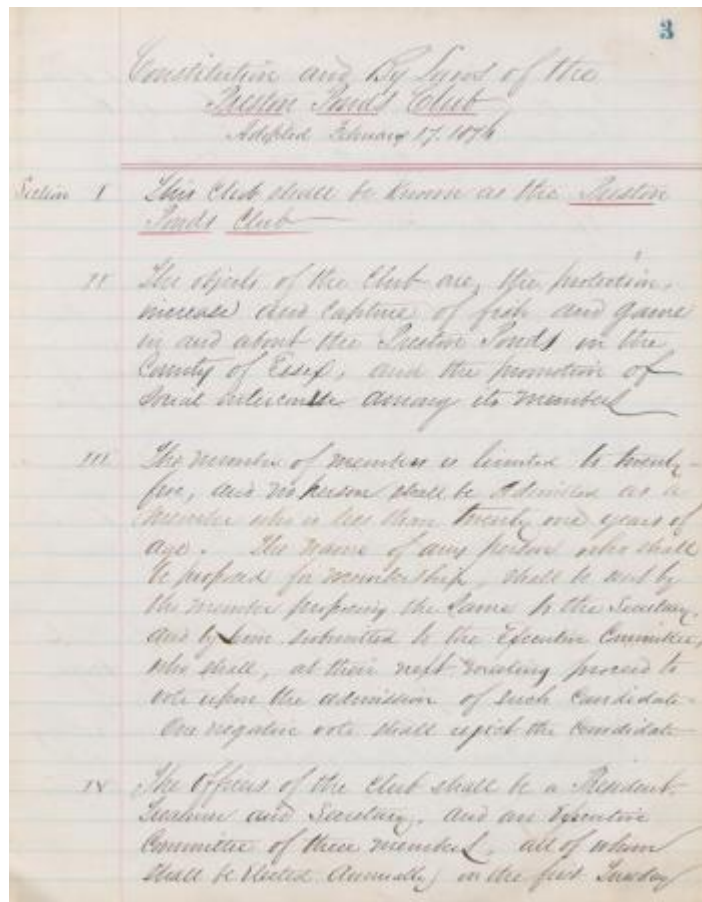 3
Constitution and By Laws of the
Preston Ponds Club
Adopted February 17. 1876
Section I This Club shall be known as the Preston
Ponds Club
II The objects of the Club are, the protection,
increase and capture of fish and game
in and about the Preston Ponds in the
County of Essex, and the promotion of
social intercourse among its members
III The number of members is limited to twenty-
five, and no person shall be admitted as a
member who is less than twenty one years of
age. The name of any person who shall
be proposed for membership, shall be sent by
the member proposing the same to the Secretary,
and by him submitted to the Executive Committee,
who shall, at their next meeting proceed to
vote upon the admission of such candidate
One negative vote shall reject the candidate
IV The Officers of the Club shall be a President,
Treasurer and Secretary, and an Executive
Committee of three members, all of whom
shall be elected Annually, on the first Tuesday